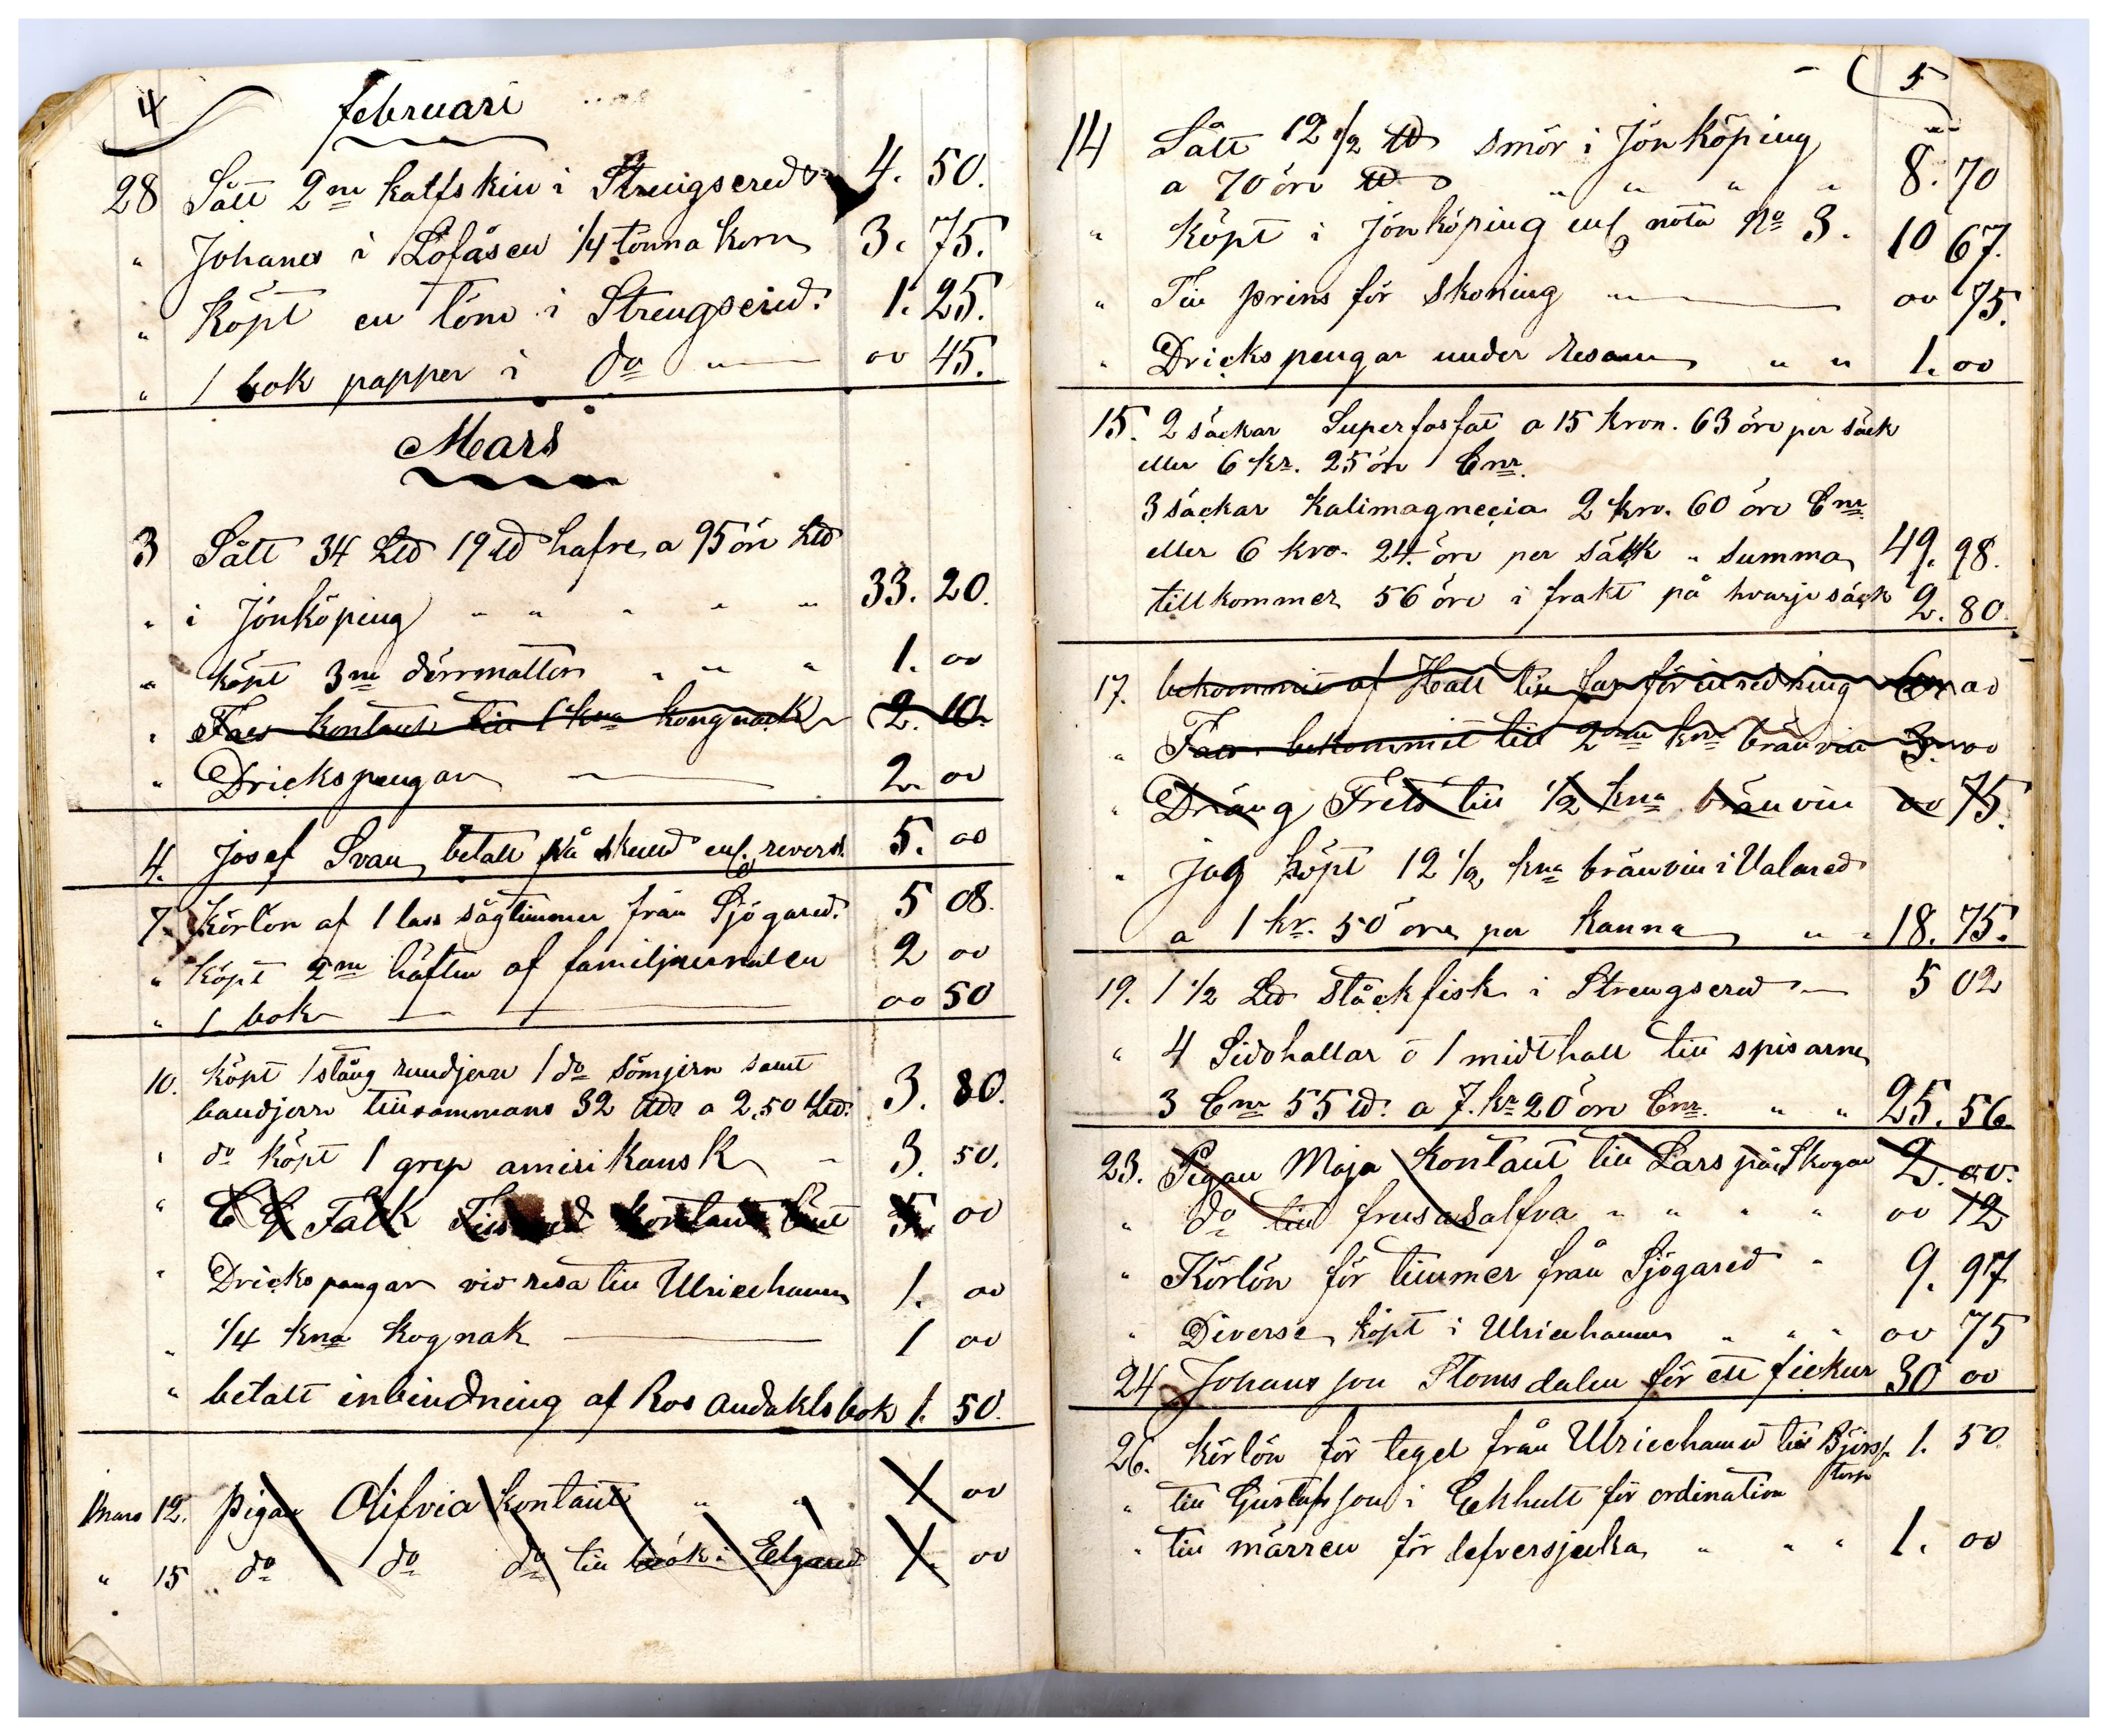 4
februari
28 Sålt 2ne kalfskin i Strengsered 4. 50.
" Johanes i Löfåsen 1/4 tonna korn 3. 75.
" Köpt en töm i Strengsered. 1. 25.
" 1 bok papper i do " — 00 45.
Mars
3 Sålt 34 L℔ 19 ℔ hafre a 95 öre L℔
" i Jönköping " " " " " 33. 20.
" köpt 3ne dörrmattor " " " 1. 00
" Far kontant till 1 kna kongnack 2. 10.
" Drickspengar — 2. 00
4. Josef Svan betalt på skuld enl. revers. 5. 00
7. Körlön af 1 lass sågtimmer från Sjögared. 5 08.
" köpt 2ne häften af familjjurnalen 2 00
" 1 bok — — 00 50
10. köpt 1 stång rundjern 1 do sömjern samt
bandjern tillsammans 32 ℔ a 2,50 L℔. 3. 80.
" do köpt 1 grep amirikansk " 3. 50.
" C G Falk kontant 5. 00
" Drickspengar vid resa till Ulricehamn 1. 00
" 1/4 kna kognak — 1 00
" betalt inbindning af Ros andaktsbok 1. 50.
Mars 12. pigan Olifvia kontant " " 1 00
" 15 " do do do till i Elgared 1. 00
5
14 Sålt 12 1/2 ℔ smör i Jönköping
a 70 öre ℔ " " " " 8. 70
" köpt i Jönköping enl nota No 3. 10 67.
" Till prins för skoning " — 00 75.
" Drickspengar under resan " " 1. 00
15. 2 säckar Superfosfat a 15 kron. 63 öre per säck
eller 6 kr. 25 öre Cnr.
3 säckar kalimagnecia 2 kro. 60 öre Cnr.
eller 6 kro. 24. öre per säkk " summa 49. 98.
tillkommer 56 öre i frakt på hvarje säck 2. 80.
17. bekommit af Hall till far för inredning 6. 00
" Far bekommit till 2ne kna bränvin 3. 00
" Dräng Frets till 1/2 kna bränvin 00 75.
" jag köpt 12 1/2 kna bränvin i Valared
a 1 kr. 50 öre per kanna " " 18. 75.
19. 1 1/2 L℔ ståckfisk i Strengsered — 5 02
" 4 Sidohallar o 1 midthall till spisarne
3 Cnr 55 ℔. a 7. kr 20 öre Cnr. " " 25. 56.
23. Pigan Maja kontant till Lars på Skogen 2. 00.
" do till frusasalfva " " " " 00 12
" Körlön för timmer från Sjögared " 9. 97
" Diverse köpt i Ulricehamn " " " 00 75
24 Johansson Stomsdalen för ett fickur 30 00
26. körlön för tegel från Ulricehamn till Björs- 1. 50.
torp
" till Gustafsson i Ekhult för ordination
" till märren för lefversjuka " " " 1. 00